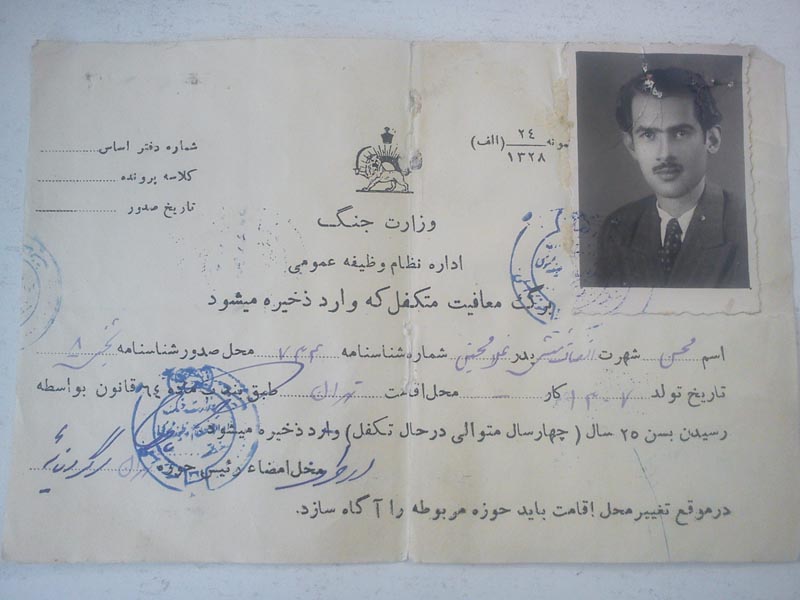 نمونه ۲۴ (الف)
۱۳۲۸
شماره دفتر اساس
کلاسه پرونده
تاریخ صدور
وزارت جنگ
اداره نظام وظیفه عمومی
برگ معافیت متکفل که وارد ذخیره میشود
اسم محسن شهرت پدر شماره شناسنامه ۷۴۴ محل صدور شناسنامه
تاریخ تولد کار محل اقامت تهران طبق بند ماده ۶۴ قانون بواسطه
رسیدن بسن ۲۵ سال (چهار سال متوالی در حال تکفل) وارد ذخیره میشود
محل امضاء رئیس حوزه تهران
در موقع تغییر محل اقامت باید حوزه مربوطه را آگاه سازد.